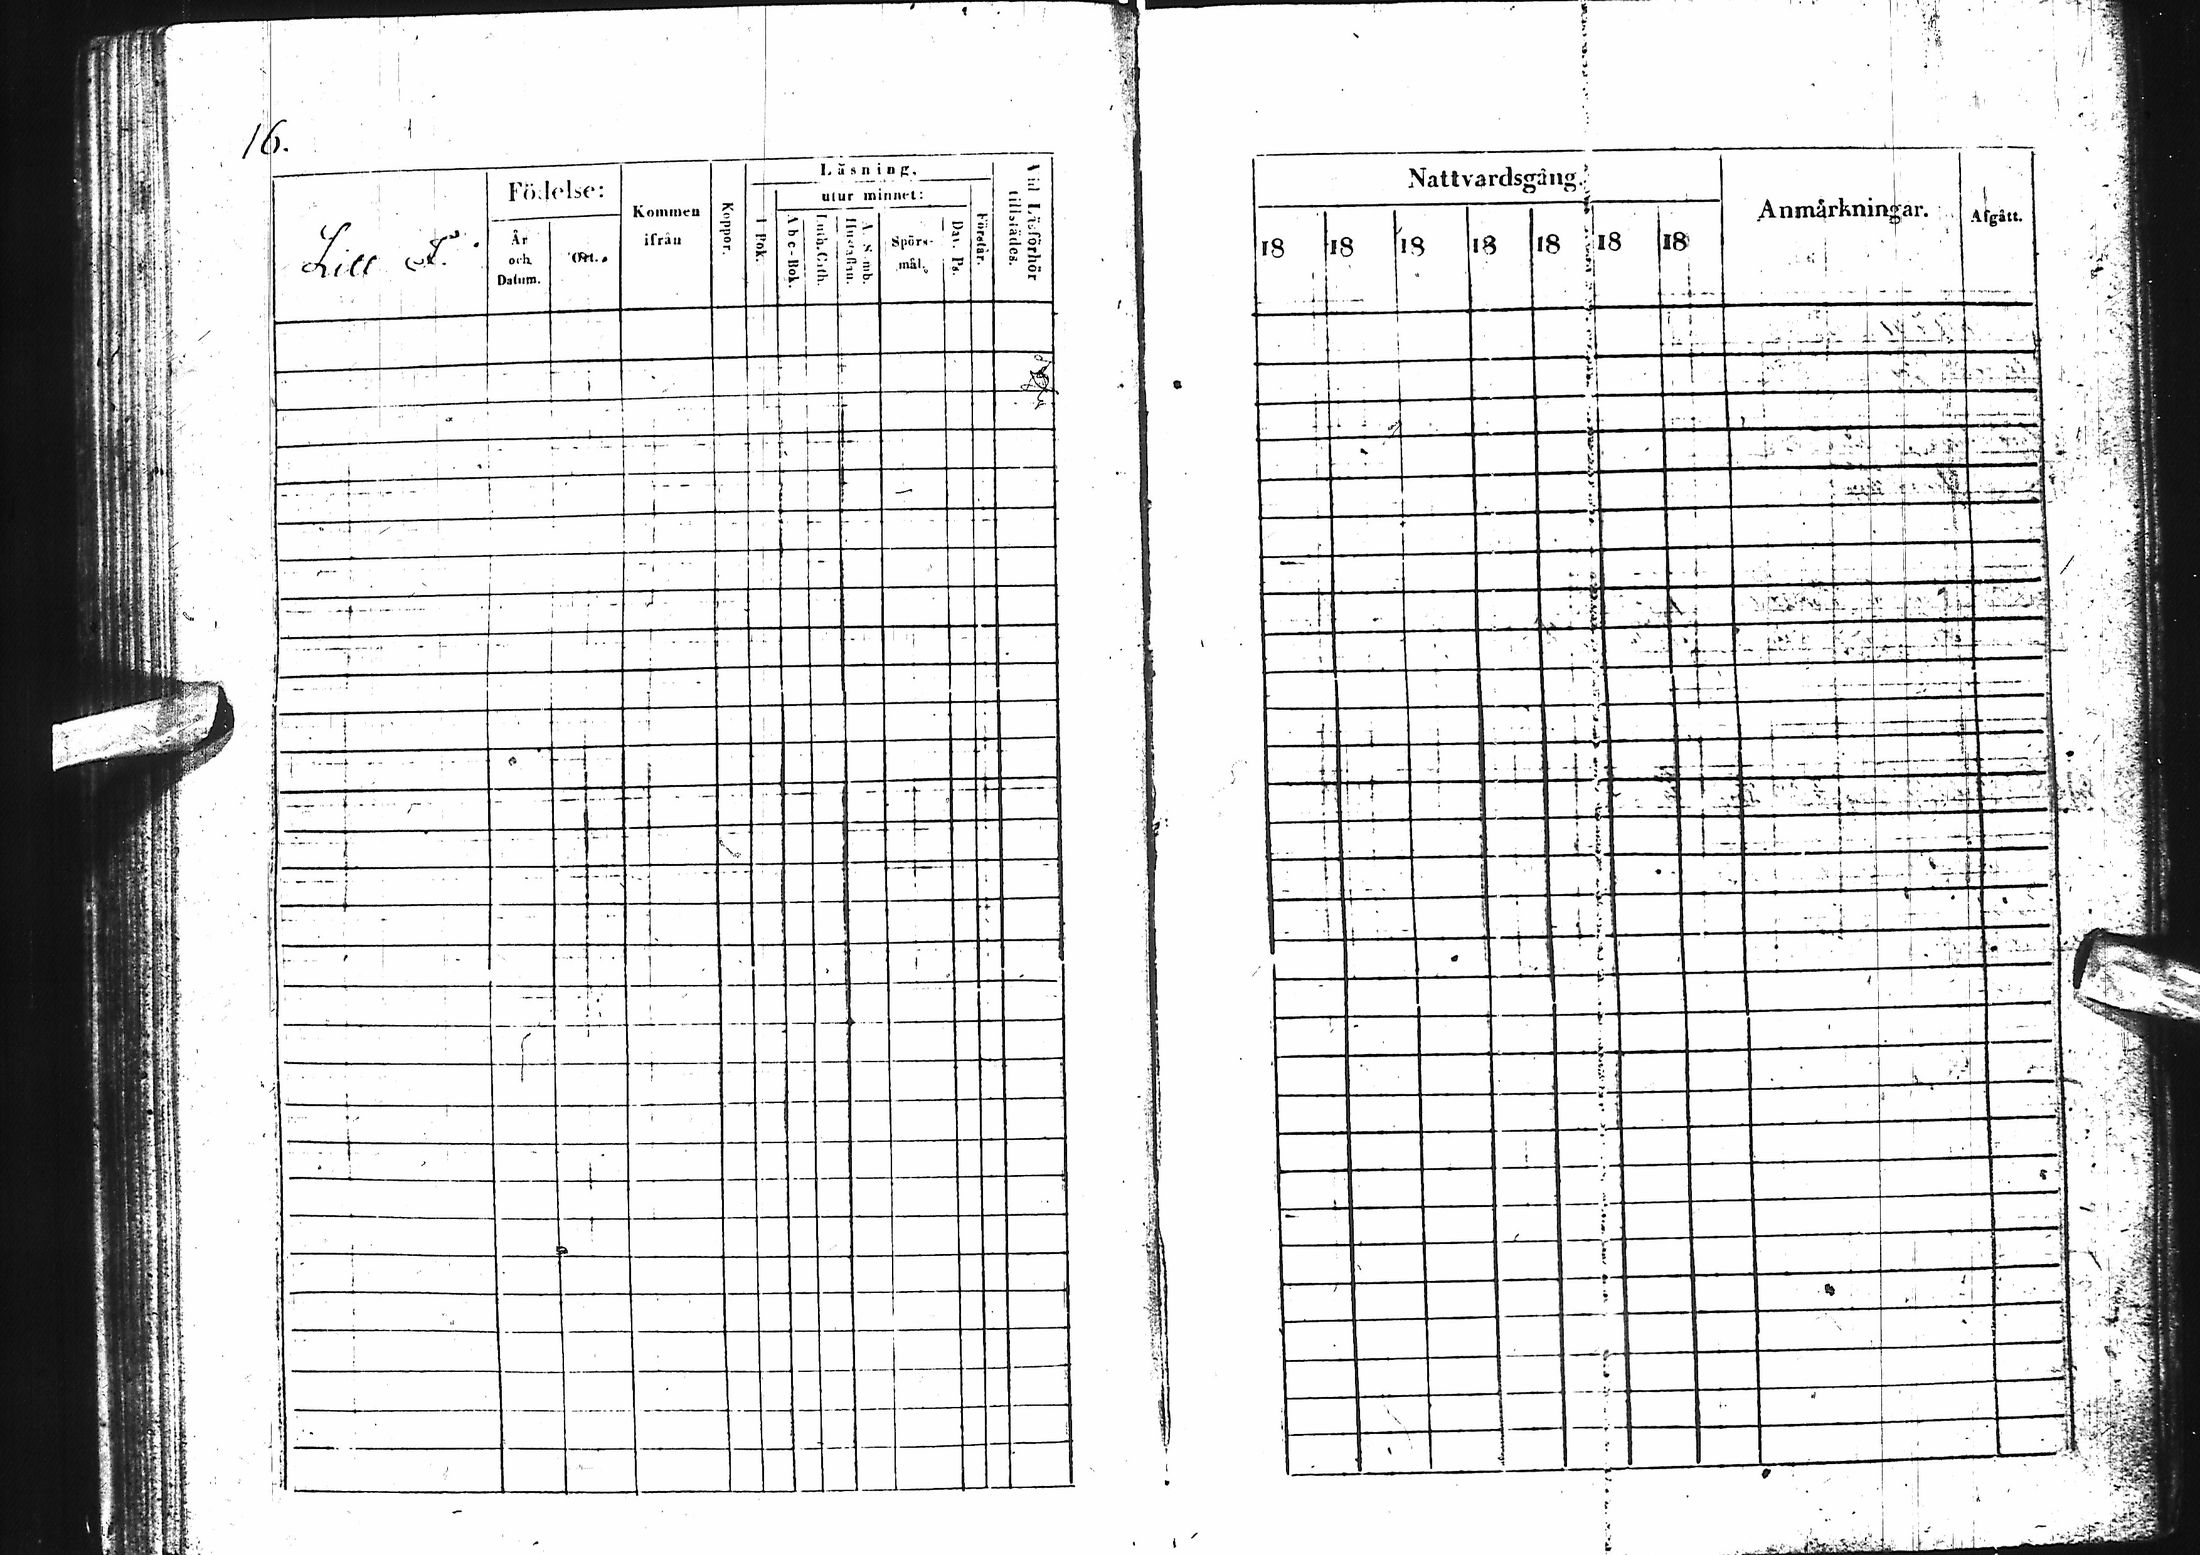 16.
Lill
Födelse:
År och Datum.
Ort.
Kommen ifrån
Koppor.
Läsning.
I Bok.
utur minnet:
Abc-Bok.
Luth. Cath.
Hustaflan.
A. S-mb.
Spörs-mål.
Dav. Ps.
Förstår.
Vid Läsförhör tillstädes.
Nattvardsgång.
18 18 18 18 18 18 18
Anmärkningar.
Afgått.